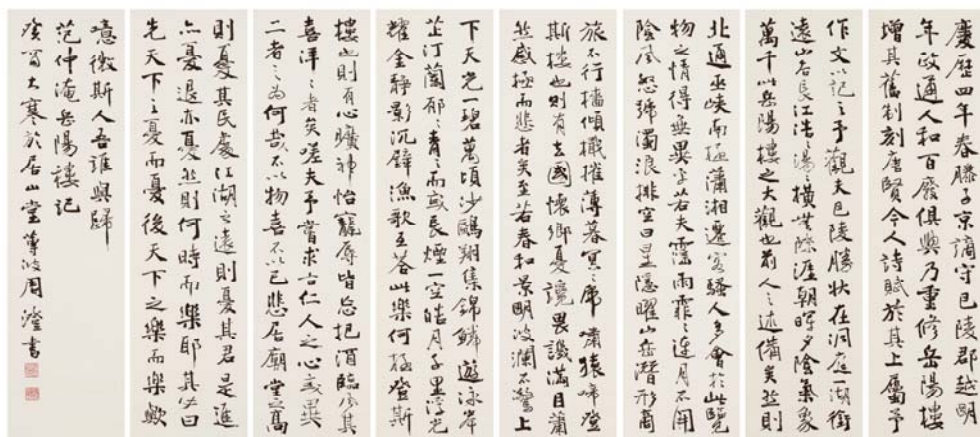 慶歷四年春滕子京謫守巴陵郡越明
年政通人和百廢俱興乃重修岳陽樓
增其舊制刻唐賢今人詩賦於其上屬予
作文以記之予觀夫巴陵勝狀在洞庭一湖銜
遠山吞長江浩〻湯〻橫無際涯朝暉夕陰氣象
萬千此岳陽樓之大觀也前人之述備矣然則
北通巫峽南極瀟湘遷客騷人多會於此覽
物之情得無異乎若夫霪雨霏〻連月不開
陰風怒號濁浪排空日星隱曜山岳潛形商
旅不行檣傾檝摧薄暮冥〻虎嘯猿啼登
斯樓也則有去國懷鄉憂讒畏譏滿目蕭
然感極而悲者矣至若春和景明波瀾不驚上
下天光一碧萬頃沙鷗翔集錦鱗遊泳岸
芷汀蘭郁〻青〻而或長煙一空皓月千里浮光
耀金靜影沉璧漁歌互答此樂何極登斯
樓也則有心曠神怡寵辱皆忘把酒臨風其
喜洋〻者矣嗟夫予嘗求古仁人之心或異
二者之為何哉不以物喜不以己悲居廟堂之高
則憂其民處江湖之遠則憂其君是進
亦憂退亦憂然則何時而樂耶其必曰
先天下之憂而憂後天下之樂而樂歟
噫微斯人吾誰與歸
范仲淹岳陽樓記
癸酉大寒於居山堂 周澄書